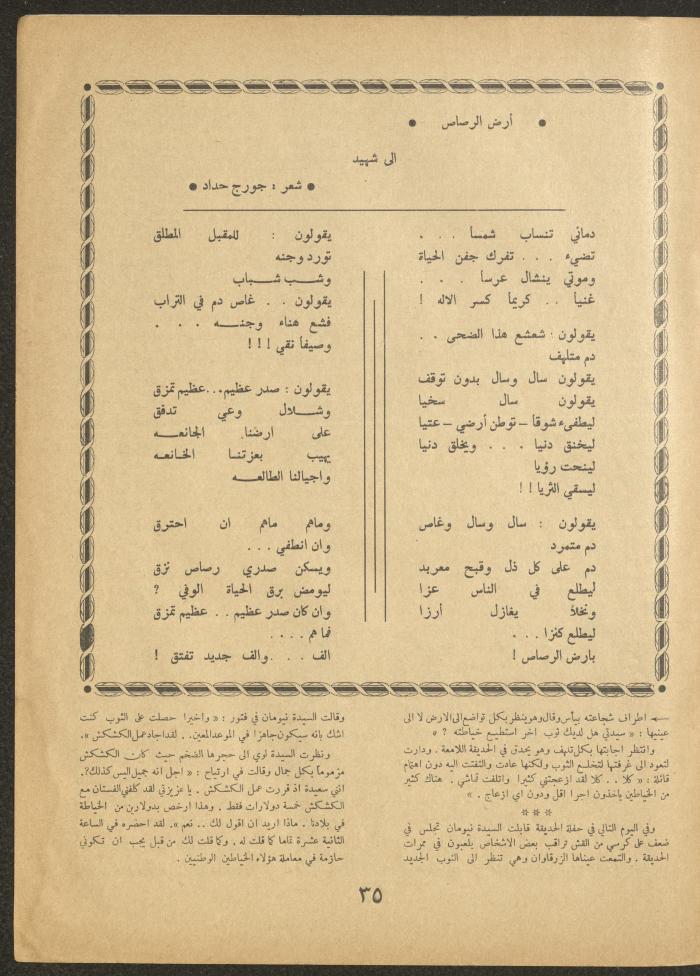 ● أرض الرصاص ●
الى شهيد
● شعر : جورج حداد ●
دمائي تنساب شمساً . . .
تضيء . . . تفرك جفن الحياة
وموتي ينشال عرساً . . .
غنياً . . كريماً كسر الاله !
يقولون : شعشع هذا الضحى . .
دم متلهف
يقولون سال وسال بدون توقف
يقولون سال سخيا
ليطفىء شوقاً – توطن أرضي – عتيا
ليخنق دنيا . . . ويخلق دنيا
لينحت رؤيا
ليسقي الثريا ! !
يقولون : سال وسال وغاص
دم متمرد
دم على كل ذل وقبح معربد
ليطلع في الناس عزا
ونخلاً يغازل أرزا
ليطلع كنزا . . .
بارض الرصاص !
يقولون : للمقبل المطلق
تورد وجنه
وشـب شـباب
يقولون . . غاص دم في التراب
فشع هناء وجنـه . . .
وصيفاً نقي ! ! !
يقولون : صدر عظيم...عظيم تمزق
وشـلال وعي تدفق
على ارضنا الجائعـه
يهيب بعزتنا الخانعـه
واجيالنا الطالعـه
وماهم ماهم ان احترق
وان انطفي . . .
ويسكن صدري رصاص نزق
ليومض برق الحياة الوفي ؟
وان كان صدر عظيم . . عظيم تمزق
فما هم . . . .
الف . . . والف جديد تفتق !
اطراف شجاعته بيأس وقال وهو ينظر بكل تواضع الى الارض لا الى
عينيها : « سيدتي هل لديك ثوب آخر استطيع خياطته ؟ »
وانتظر اجابتها بكل تلهف وهو يحدق في الحديقة اللامعة . ودارت
لتعود الى غرفتها لتخلع الثوب ولكنها عادت والتفتت اليه دون اهتمام
قائلة : « كلا . . كلا لقد ازعجتني كثيرا واتلفت قماشي . هناك كثير
من الخياطين ياخذون اجرا اقل ودون اي ازعاج . »
* * *
وفي اليوم التالي في حفلة الحديقة قابلت السيدة نيومان تجلس في
ضعف على كرسي من القش تراقب بعض الاشخاص يلعبون في ممرات
الحديقة . والتمعت عيناها الزرقاوان وهي تنظر الى الثوب الجديد
وقالت السيدة نيومان في فتور : « واخيرا حصلت على الثوب كنت
اشك بانه سيكون جاهزا في الموعد المعين . لقد اجاد عمل الكشكش » .
ونظرت السيدة لوي الى حجرها الضخم حيث كان الكشكش
مزموماً بكل جمال وقالت في ارتياح : « اجل انه جميل اليس كذلك؟.
انني سعيدة اذ قررت عمل الكشكش . يا عزيزتي لقد كلفني الفستان مع
الكشكش خمسة دولارات فقط . وهذا ارخص بدولارين من الخياطة
في بلادنا . ماذا اريد ان اقول لك . . نعم ». لقد احضره في الساعة
الثانية عشرة تماما كما قلت له . وكما قلت لك من قبل يجب ان تكوني
حازمة في معاملة هؤلاء الخياطين الوطنيين .
٣٥